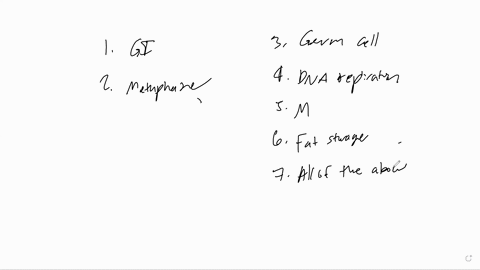 1. GI
2. Metaphase
3. Germ cell
4. DNA replication
5. M
6. Fat storage
7. All of the above